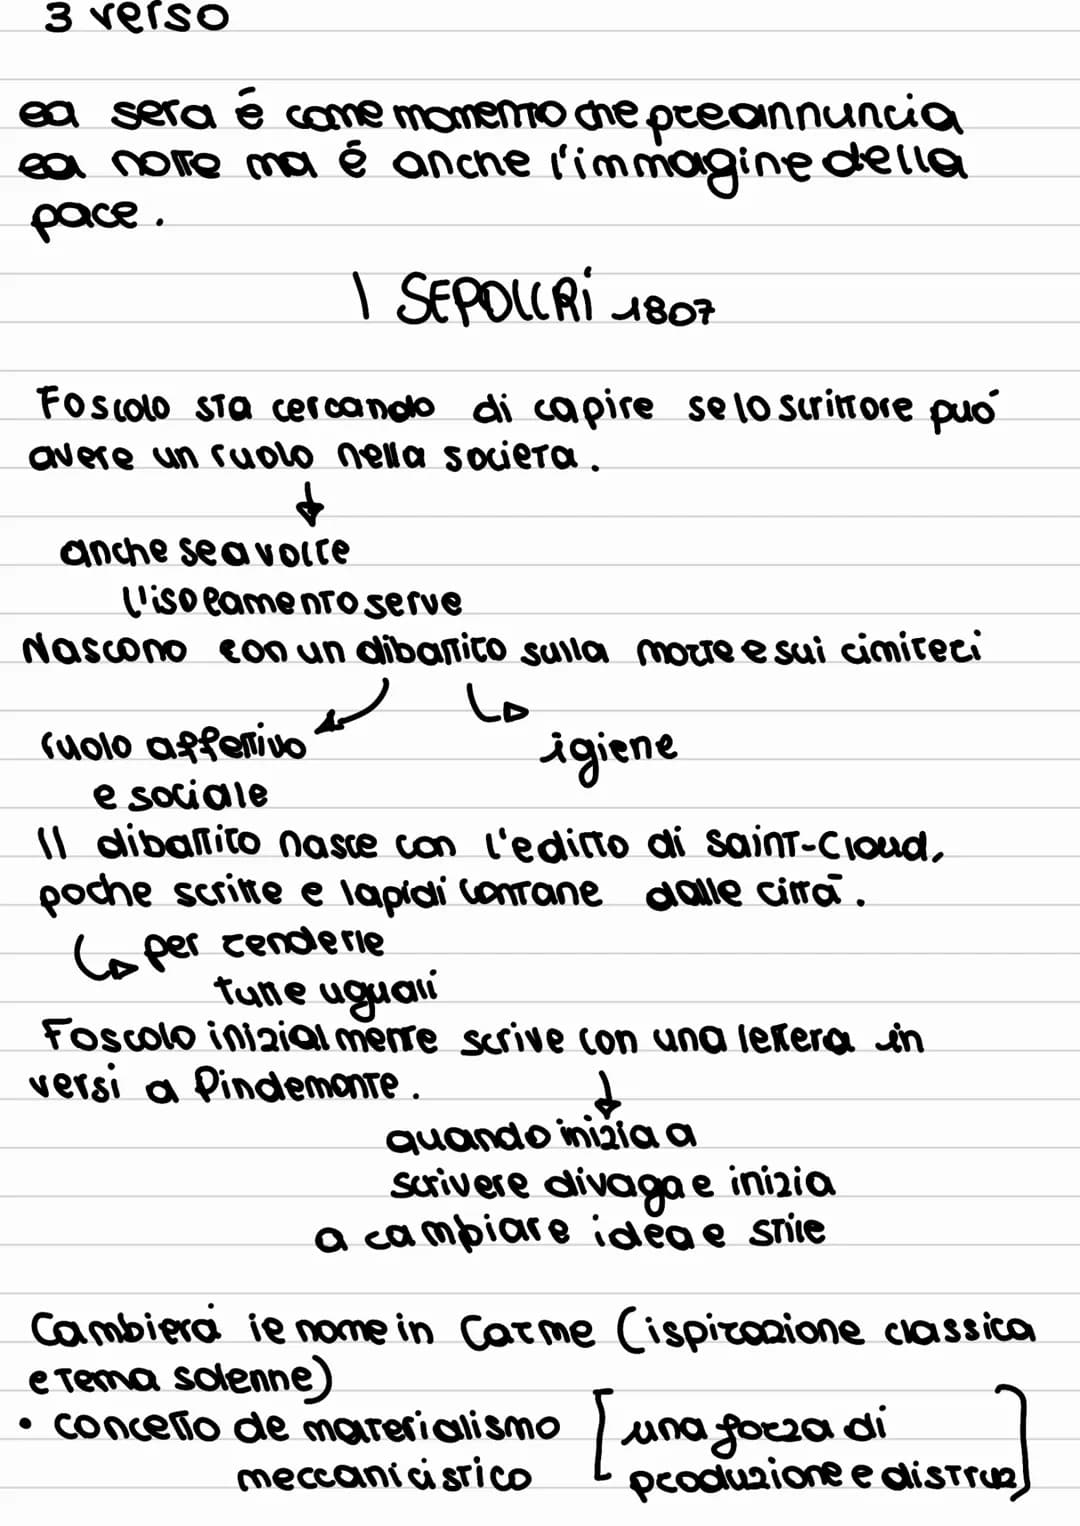 3 verso
la sera é come momento che preannuncia
la notte ma é anche l'immagine della
pace.
I SEPOLCRI 1807
Foscolo sta cercando di capire se lo scrittore può
avere un ruolo nella societa.
anche se a volte
l'isolamento serve
Nascono con un dibattito sulla morte e sui cimiteri
ruolo affettivo
igiene
e sociale
Il dibattito nasce con l'editto di Saint-Cloud,
poche scritte e lapidi lontane dalle città.
per renderle
tutte uguali
Foscolo inizialmente scrive con una lettera in
versi a Pindemonte.
quando inizia a
scrivere divaga e inizia
a cambiare idea e stile
Cambierà il nome in Carme (ispirazione classica
e tema solenne)
• concetto de materialismo [una forza di
meccanicistico produzione e distruz]